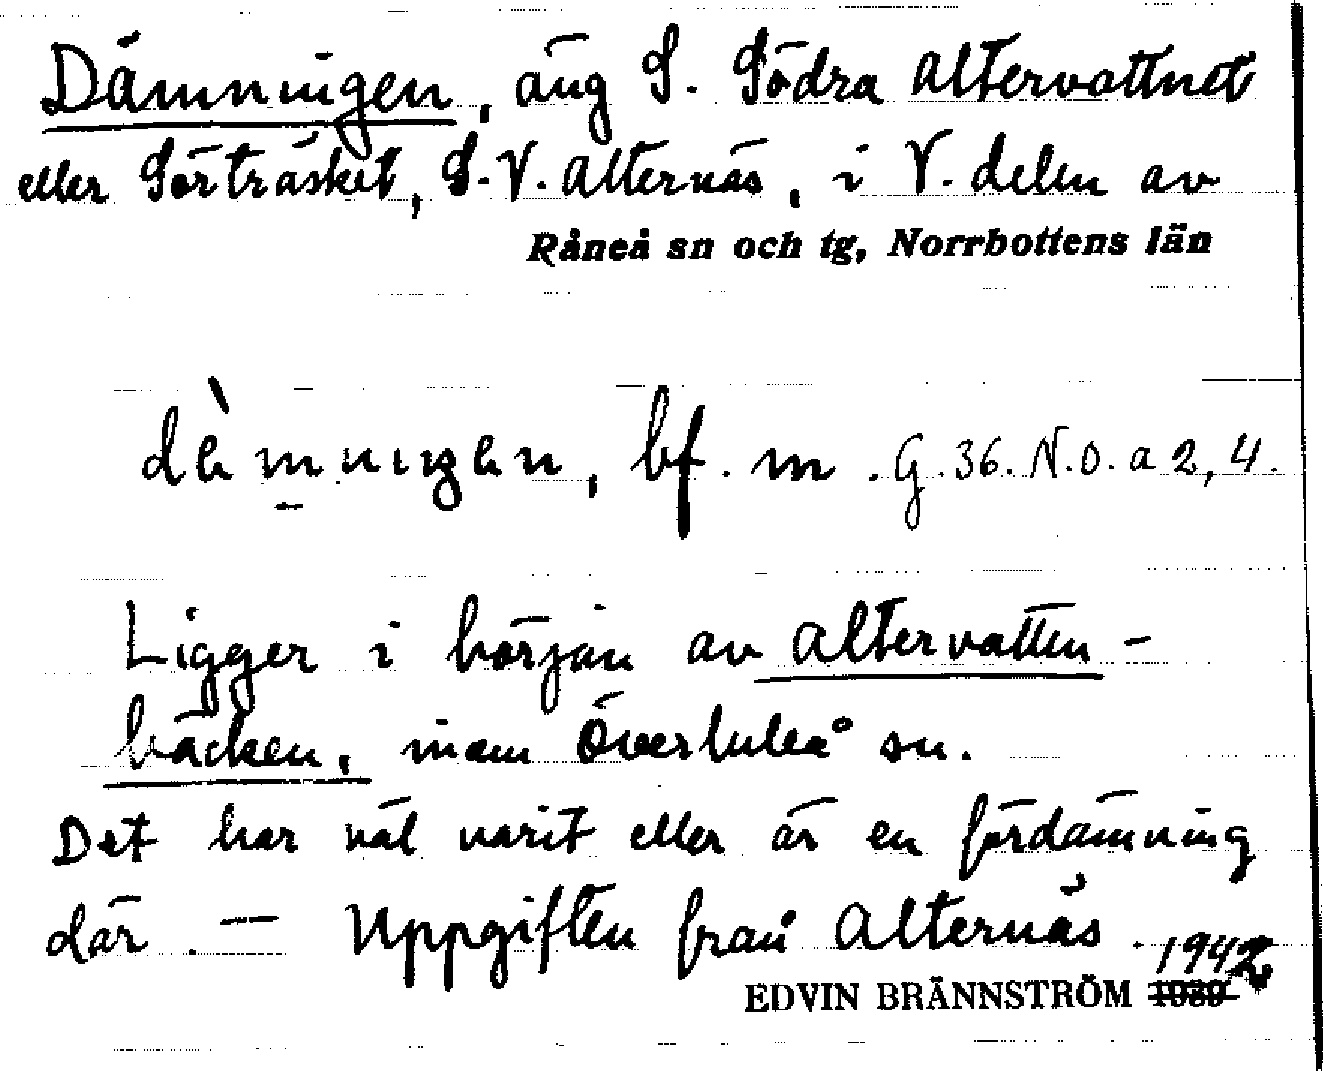 Dämningen, äng S. Södra Altervattnet
eller Sörträsket, S.V. Alternäs, i V. delen av
Råneå sn och tg, Norrbottens län
bf. m. G.36.N.O. a 2, 4.
Ligger i början av Altervatten-
bäcken, inom Överluleå sn.
Det har väl varit eller är en fördämning
där. — Uppgiften från Alternäs.
1942
EDVIN BRÄNNSTRÖM 1939